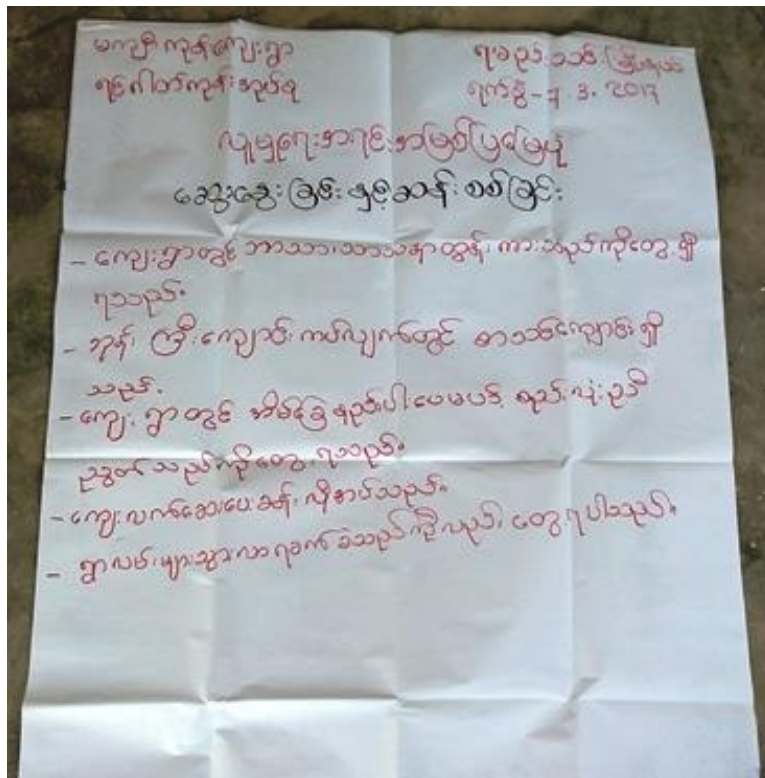 မကျီးကုန်းကျေးရွာ
ရင်းဂါတ်ကုန်းအုပ်စု ရက်စွဲ - 7. 3. 2017
လူမှုရေးအရင်းအမြစ်ပြမြေပုံ
ဆွေးနွေးခြင်းနှင့်ဆန်းစစ်ခြင်း
- ကျေးရွာတွင် ဘာသာ၊သာသနာထွန်းကားသည်ကိုတွေ့ရှိ
ရသည်။
- ဘုန်းကြီးကျောင်းကပ်လျက်တွင် စာသင်ကျောင်းရှိ
သည်။
- ကျေးရွာတွင် အိမ်ခြေနည်းပါးပေမယ့် စည်းလုံးညီ
ညွတ်သည်ကိုတွေ့ရသည်။
- ကျေးလက်ဆေးပေးခန်းလိုအပ်သည်။
- ရွာလမ်းများသွားလာရခက်ခဲသည်ကိုလည်းတွေ့ရပါသည်။